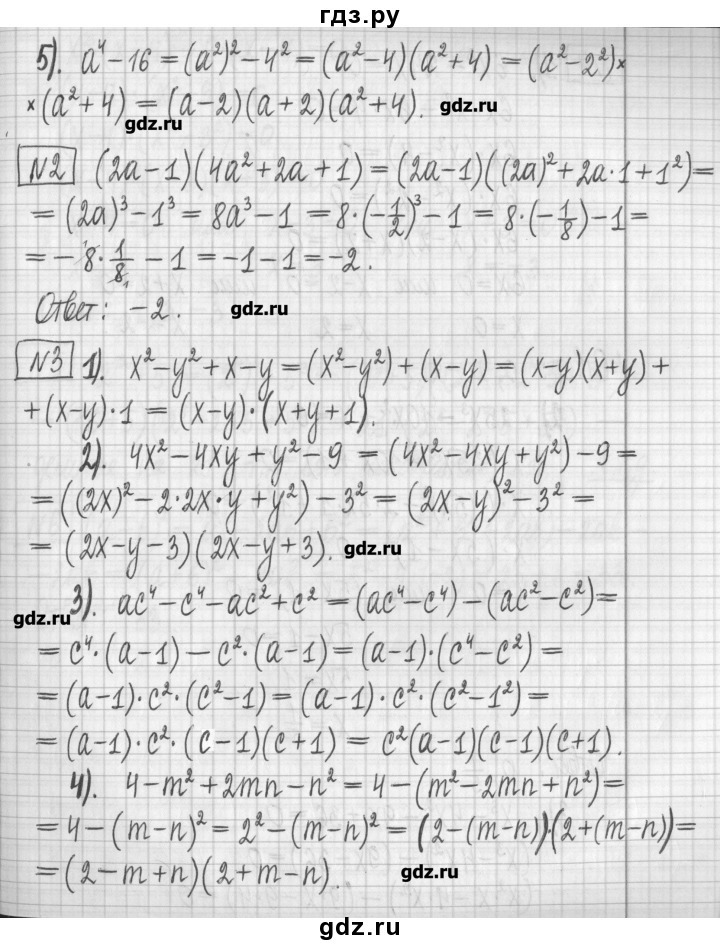 гдз.ру
5). a⁴ − 16 = (a²)² − 4² = (a² − 4)(a² + 4) = (a² − 2²)×
×(a² + 4) = (a − 2)(a + 2)(a² + 4).
gdz.ru
gdz.ru
N2 (2a − 1)(4a² + 2a + 1) = (2a − 1)((2a)² + 2a·1 + 1²) =
= (2a)³ − 1³ = 8a³ − 1 = 8·(−1/2)³ − 1 = 8·(−1/8) − 1 =
= − 8·1/8 − 1 = −1 − 1 = −2.
Ответ: −2.
gdz.ru
N3 1). x² − y² + x − y = (x² − y²) + (x − y) = (x − y)(x + y) +
+ (x − y)·1 = (x − y)·(x + y + 1).
2). 4x² − 4xy + y² − 9 = (4x² − 4xy + y²) − 9 =
= ((2x)² − 2·2x·y + y²) − 3² = (2x − y)² − 3² =
= (2x − y − 3)(2x − y + 3).
gdz.ru
3). ac⁴ − c⁴ − ac² + c² = (ac⁴ − c⁴) − (ac² − c²) =
gdz.ru
= c⁴·(a − 1) − c²·(a − 1) = (a − 1)·(c⁴ − c²) =
= (a − 1)·c²·(c² − 1) = (a − 1)·c²·(c² − 1²) =
= (a − 1)·c²·(c − 1)(c + 1) = c²(a − 1)(c − 1)(c + 1).
4). 4 − m² + 2mn − n² = 4 − (m² − 2mn + n²) =
= 4 − (m − n)² = 2² − (m − n)² = (2 − (m − n))·(2 + (m − n)) =
= (2 − m + n)(2 + m − n).
gdz.ru
gdz.ru